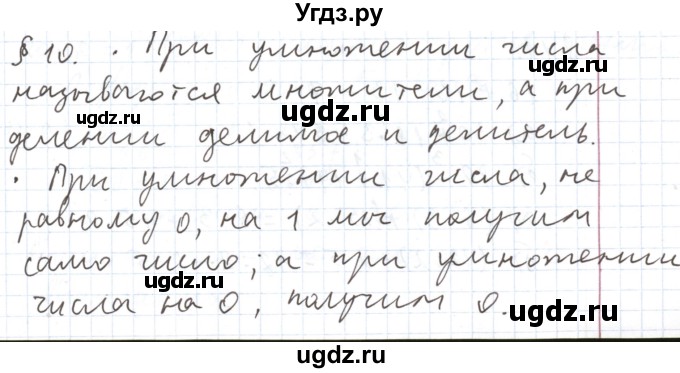 Угдз.ру
§ 10. · При умножении числа
называются множители, а при
делении делимое и делитель.
· При умножении числа, не
равному 0, на 1 мы получим
само число; а при умножении
числа на 0, получим 0.
ugdz.ru
ugdz.ru
ugdz.ru
ugdz.ru
ugdz.ru
ugdz.ru
ugdz.ru
ugdz.ru
ugdz.ru